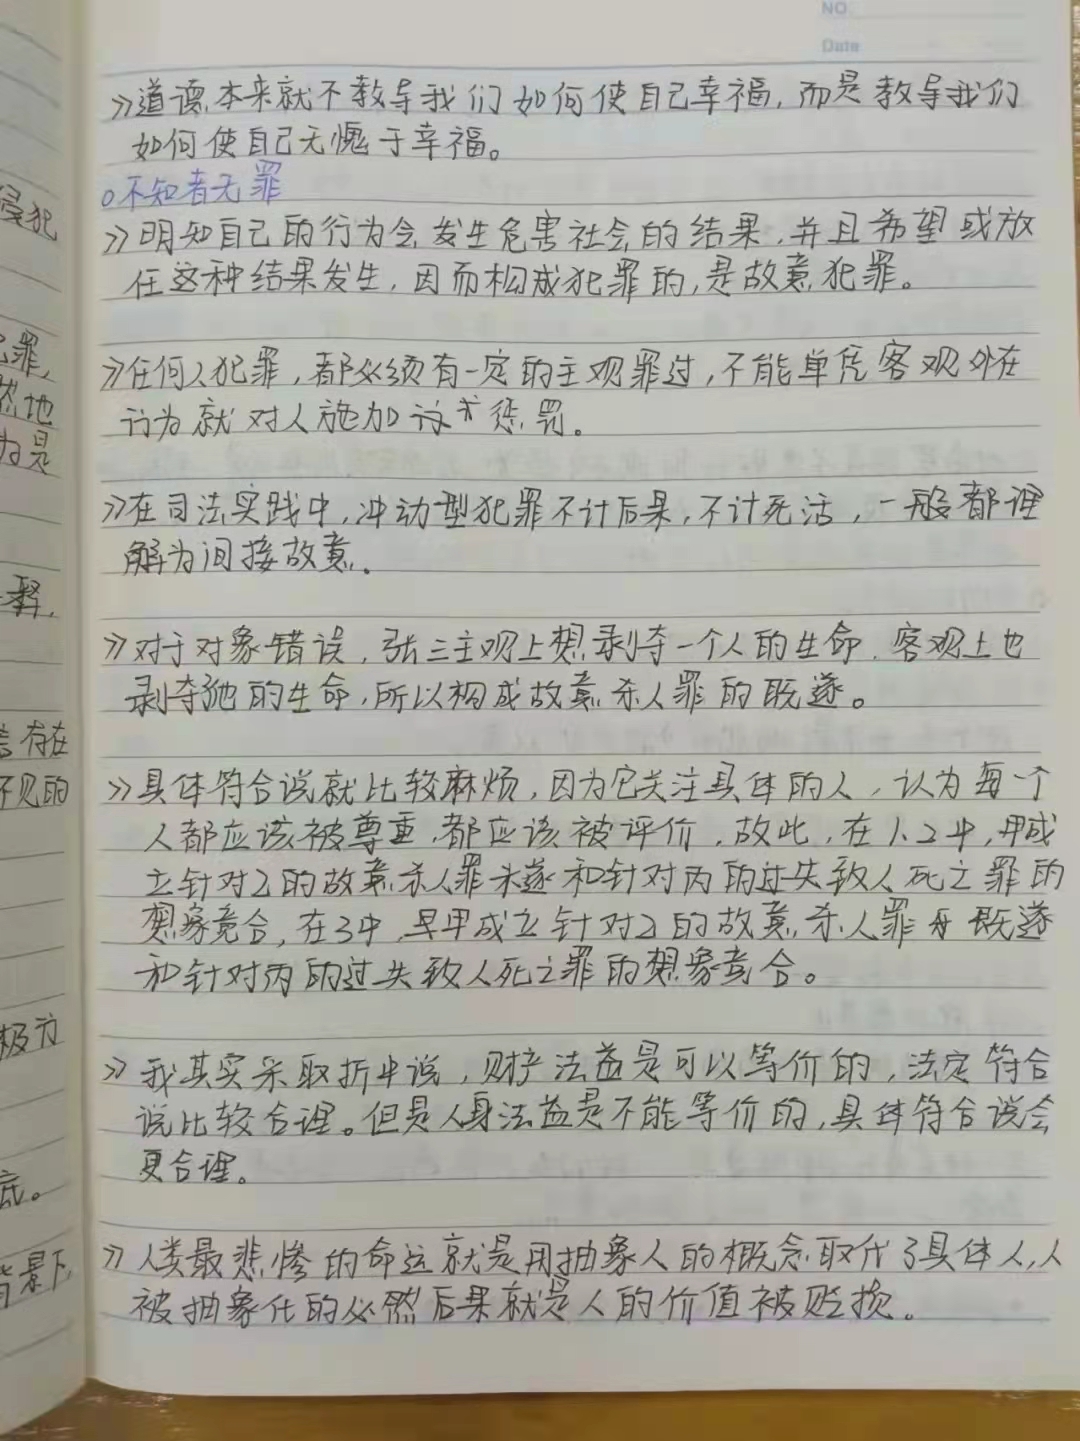 NO.
Date
>> 道德本来就不教导我们如何使自己幸福，而是教导我们
如何使自己无愧于幸福。
○不知者无罪
>> 明知自己的行为会发生危害社会的结果，并且希望或放
任这种结果发生，因而构成犯罪的，是故意犯罪。
>> 任何人犯罪，都必须有一定的主观罪过，不能单凭客观外在
行为就对人施加惩罚。
>> 在司法实践中，冲动型犯罪不计后果，不计死活，一般都理
解为间接故意.
>> 对于对象错误，张三主观上想剥夺一个人的生命，客观上也
剥夺他的生命，所以构成故意杀人罪的既遂。
>> 具体符合说就比较麻烦，因为它关注具体的人，认为每一个
人都应该被尊重，都应该被评价，故此，在1、2中，甲成
立针对乙的故意杀人罪未遂和针对丙的过失致人死亡罪的
想象竞合，在3中，甲成立针对乙的故意杀人罪既遂
和针对丙的过失致人死亡罪的想象竞合。
>> 我其实采取折中说，财产法益是可以等价的，法定符合
说比较合理。但是人身法益是不能等价的，具体符合说会
更合理。
>> 人类最悲惨的命运就是用抽象人的概念取代了具体人，人
被抽象化的必然后果就是人的价值被贬损。
侵犯
罪，
地
为是
释，
存在
不见的
极为
底。
背景下，